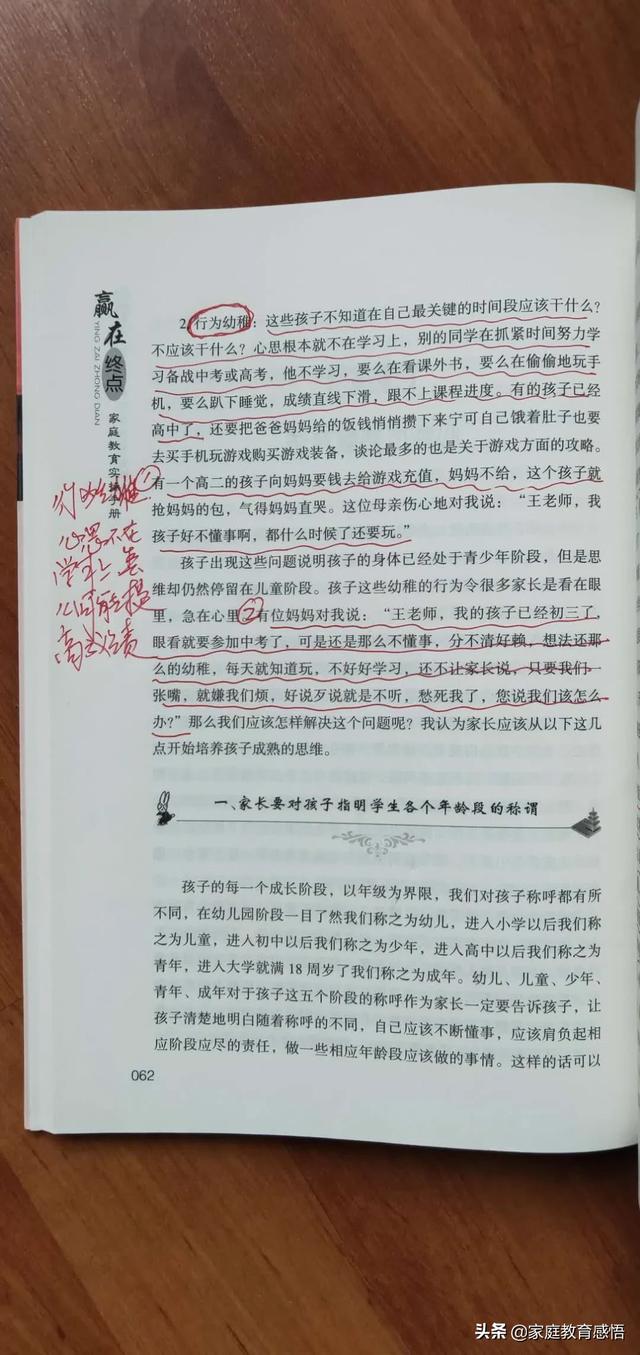 赢在终点
YING ZAI ZHONG DIAN
家庭教育实操手册
2.行为幼稚：这些孩子不知道在自己最关键的时间段应该干什么？
不应该干什么？心思根本就不在学习上，别的同学在抓紧时间努力学
习备战中考或高考，他不学习，要么在看课外书，要么在偷偷地玩手
机，要么趴下睡觉，成绩直线下滑，跟不上课程进度。有的孩子已经
高中了，还要把爸爸妈妈给的饭钱悄悄攒下来宁可自己饿着肚子也要
去买手机玩游戏购买游戏装备，谈论最多的也是关于游戏方面的攻略。
有一个高二的孩子向妈妈要钱去给游戏充值，妈妈不给，这个孩子就
抢妈妈的包，气得妈妈直哭。这位母亲伤心地对我说：“王老师，我
孩子好不懂事啊，都什么时候了还要玩。”
孩子出现这些问题说明孩子的身体已经处于青少年阶段，但是思
维却仍然停留在儿童阶段。孩子这些幼稚的行为令很多家长是看在眼
里，急在心里②有位妈妈对我说：“王老师，我的孩子已经初三了，
眼看就要参加中考了，可是还是那么不懂事，分不清好赖，想法还那
么的幼稚，每天就知道玩，不好好学习，还不让家长说，只要我们一
张嘴，就嫌我们烦，好说歹说就是不听，愁死我了，您说我们该怎么
办？”那么我们应该怎样解决这个问题呢？我认为家长应该从以下这几
点开始培养孩子成熟的思维。
①
心思不在
学习上
一、家长要对孩子指明学生各个年龄段的称谓
孩子的每一个成长阶段，以年级为界限，我们对孩子称呼都有所
不同，在幼儿园阶段一目了然我们称之为幼儿，进入小学以后我们称
之为儿童，进入初中以后我们称之为少年，进入高中以后我们称之为
青年，进入大学就满 18 周岁了我们称之为成年。幼儿、儿童、少年、
青年、成年对于孩子这五个阶段的称呼作为家长一定要告诉孩子，让
孩子清楚地明白随着称呼的不同，自己应该不断懂事，应该肩负起相
应阶段应尽的责任，做一些相应年龄段应该做的事情。这样的话可以
062
头条 @家庭教育感悟